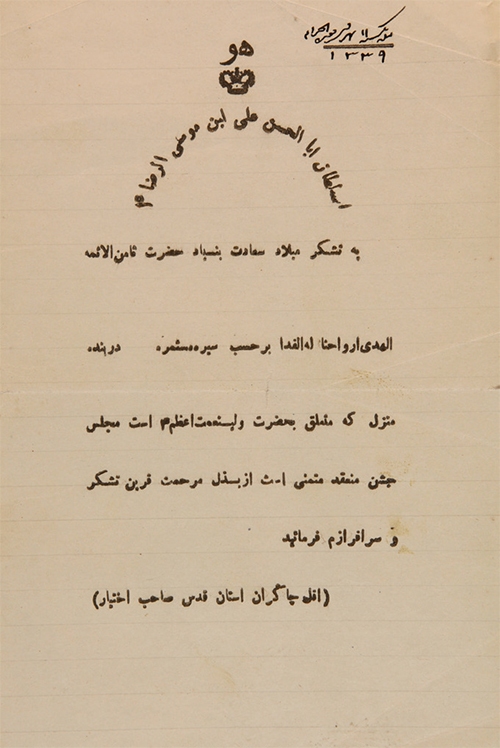 ۱۳۳۹
هو
السلطان ابا الحسن علی ابن موسی الرضا ۴
به تشکر میلاد سعادت بنسیاد حضرت ثامن‌الائمه
الهدی‌ارواحنا له‌الفدا برحسب سیره‌مستمره دربنده
منزل که متعلق بحضرت ولینعمت‌اعظم۴ است مجلس
جشن منعقد متمنی است ازبذل مرحمت قرین تشکر
و سرافرازم فرمائید
(اقل چاکران استان قدس صاحب اختیار)